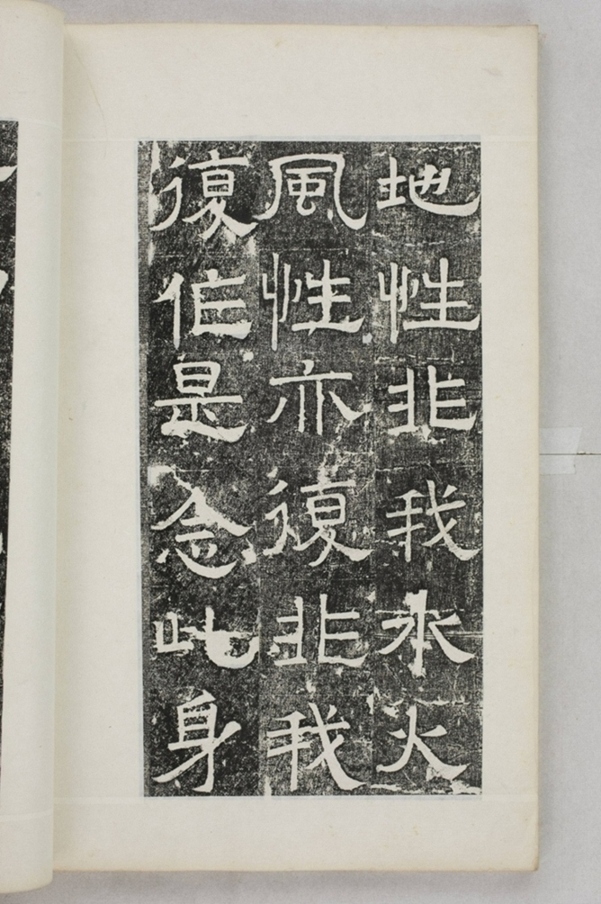 地性非我水火
風性亦復非我
復作是念此身